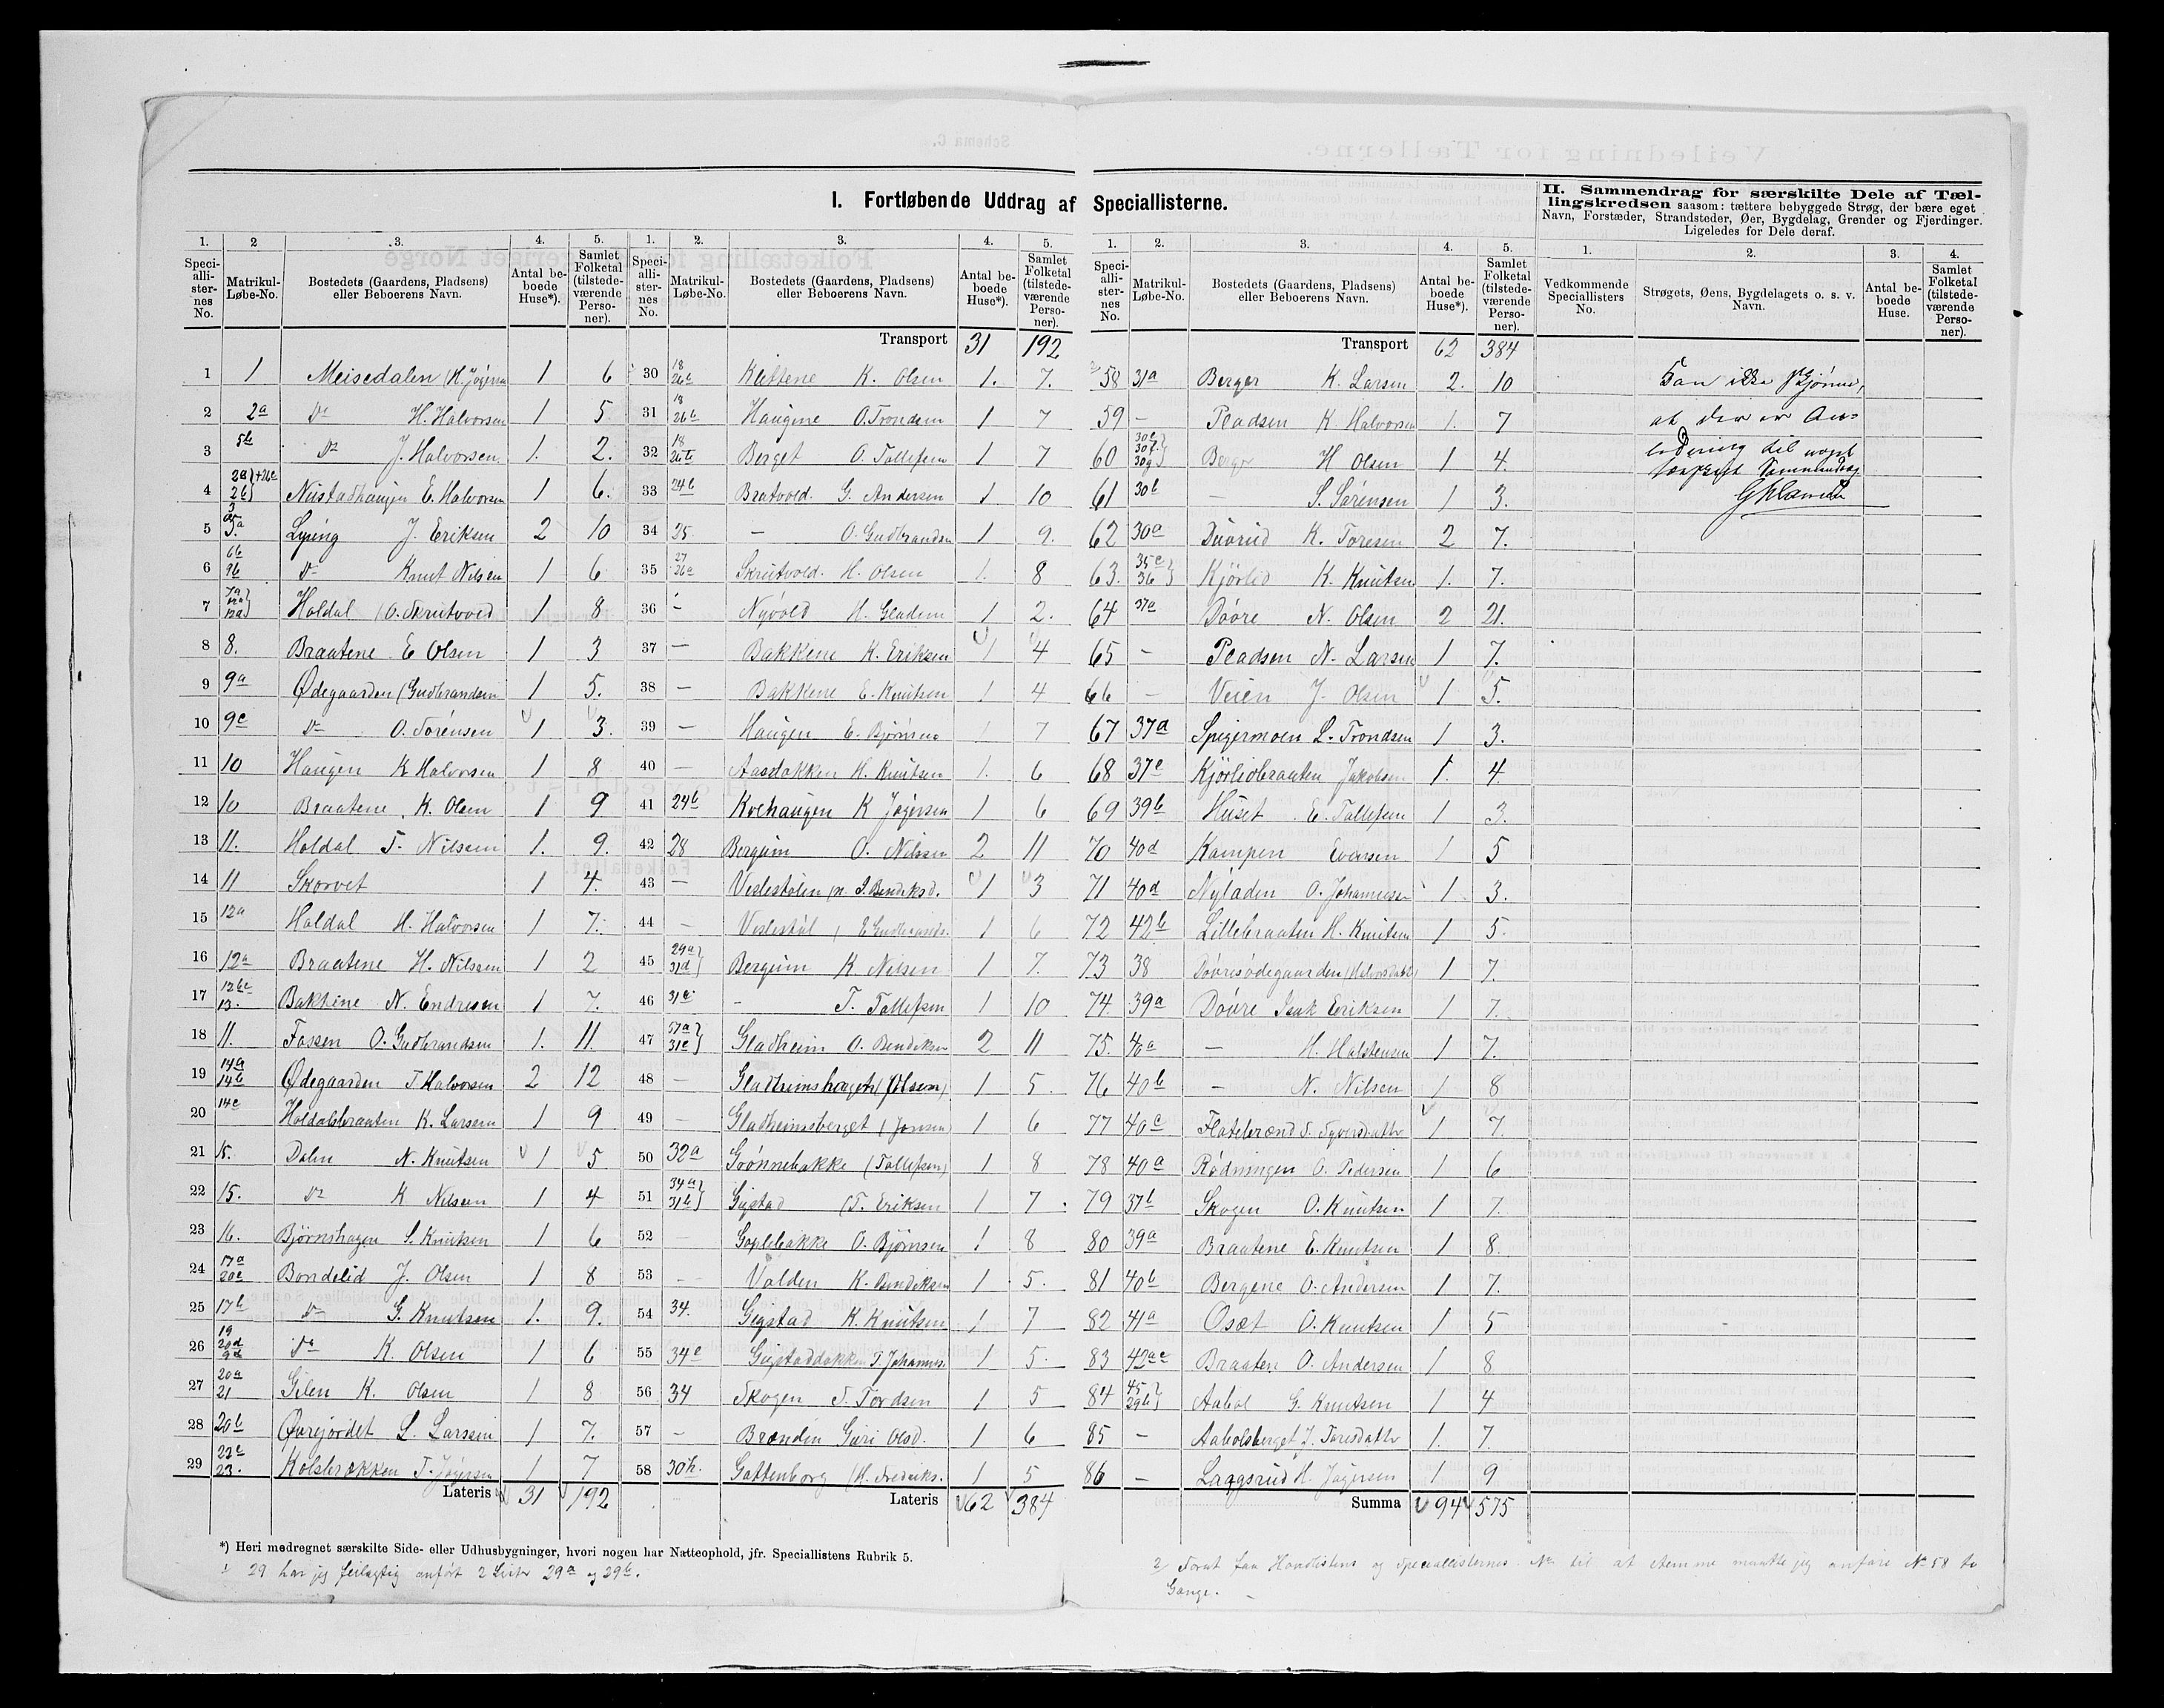 I. Fortløbende Uddrag af Speciallisterne.
II. Sammendrag for særskilte Dele af Tællingskredsen saasom: tættere bebyggede Strøg, der bære eget Navn, Forstæder, Strandsteder, Øer, Bygdelag, Grender og Fjerdinger. Ligeledes for Dele deraf.
1. Speciallisternes No. 2 Matrikul-Løbe-No. 3. Bostedets (Gaardens, Pladsens) eller Beboerens Navn. 4. Antal beboede Huse*). 5. Samlet Folketal (tilstedeværende Personer).
1 1 Meisedalen 1 6
2 2a Do H. Halvorsen 1 5
3 5b Do J. Halvorsen 1. 2.
4 E. Halvorsen 1 6.
5 5a J. Eriksen 2 10
6 6b 9b Do Knut Nilsen 1 6
7 Holdal (O. Skrutvold 1 8
8 8. Braatene E Olsen 1 3
9 9a Ødegaarden (Gudbrandsen 1 5.
10 9c Do O. Sørensen 1 3.
11 10 Haugen K Halvorsen 1 8
12 10 Braatene K. Olsen 1 9
13 11. Holdal T. Nilsen 1. 9.
14 11 Skorvet 1 4.
15 12a Holdal H. Halvorsen 1 7.
16 12a Braatene H. Nilssen 1 2
17 13. Bakkene N. Endresen 1 7.
18 11. Fossen O. Gudbrandsen 1. 11.
19 14a 14b Ødegaarden T Halvorsen 2 12
20 14c Holdalsbraaten K. Larsen 1 9
21 15. Dalen N. Knutsen 1 5
22 15. Do K Nilsen 1 4
23 16. Bjørnshagen S. Knutsen 1 6
24 17a 20c Bondelid J. Olsen 1 8
25 17b Do G. Knutsen 1. 9.
26 19 20d Do K. Olsen 1 6
27 20a 21 Gilen K. Olsen 1 8
28 20b Øvrejordet L. Larsen 1 7.
29 22c 23. Kolsbrækken T. 1 7
Lateris 31 192
1. Speciallisternes No. 2. Matrikul-Løbe-No. 3. Bostedets (Gaardens, Pladsens) eller Beboerens Navn. 4. Antal beboede Huse*). 5. Samlet Folketal (tilstedeværende Personer).
Transport 31 192
30 18 Klettene K. Olsen 1. 7.
31 18 26b Haugene O. Trondsen 1 7
32 18 Berget O. Tollefsen 1 7
33 24b Bratvold. G. Andersen 1 10
34 25 – O. Gudbrandsen 1 9.
35 27 26a Skrutvold. H. Olsen 1. 8
36 – Nyvold H. 1 2.
37 – Bakkene K. Eriksen 1 4
38 – Bakkene E. Knutsen 1 4
39 – Haugen E. Bjørnsen 1 7
40 – H. Knutsen 1. 6
41 24b K Jøgersen 1 6
42 28 Bergum O. Nilsen 2 11
43 – Veslestølen 1 3
44 – Veslestøl 1 6
45 29a 31d Bergum K Nilsen 1 7.
46 – T. Tollefsen 1 10
47 31c Gladheim O. Bendiksen 2 11
48 – Gladheimshaget (Olsen) 1 5.
49 – Gladheimsberget (Jonsen) 1 6
50 32a Grønnebakke (Tollefsen) 1 8
51 34a 31b Gigstad (T. Eriksen 1 7
52 – Goplebakke O. Bjørnsen 1 8
53 – Volden K. Bendiksen 1 5.
54 34. Gigstad K. Knutsen 1 7
55 34c Gigstadbakken T. Johannes. 1 5.
56 34 Skogen T. Tordsen 1 5
57 – Brænden Guri Olsd. 1 6
58 30h. Gottenborg (H. Fredriks. 1 5
Lateris 62 384
1. Speciallisternes No. 2. Matrikul-Løbe-No. 3. Bostedets (Gaardens, Pladsens) eller Beboerens Navn. 4. Antal beboede Huse*). 5. Samlet Folketal (tilstedeværende Personer).
Transport 62 384
58 31a Berger K. Larsen 2. 10
59 – Pladsen K. Halvorsen 1. 7
60 30g Berger H Olsen 1 4.
61 30b – S. Sørensen 1 3.
62 30a K. Toresen 2 7.
63. 35c 36 Kjørlid K. Knutsen 1. 7.
64 37a Døvre N. Olsen 2 21.
65 – Pladsen N. Larsen 1 7.
66 – Veien J. Olsen 1 5.
67 37a Spigermoen L. Trondsen 1 3.
68 37c Kjørlidbraaten Jakobsen 1. 4.
69 39b Huset E. Tollefsen 1 3.
70 40d Kampen Eversen 1 5
71 40d Nyladen O. Johannesen 1 3.
72 42b Lillebraaten H. Knutsen 1 5.
73 38 Døvresødegaarden 1 7.
74. 39a Døvre Isak Eriksen 1 7.
75. 40a – H. Halstensen 1 7.
76 40b – N. Nilsen 1 8
77 40c Flatebrænd 1 7.
78 40a Rødningen O. Pedersen 1 6
79 37b Skogen O. Knutsen 1 7.
80 39a Braatene E. Knutsen 1 8.
81 40b Bergene O. Andersen 1 7.
82 41a Oset O. Knutsen 1 5
83 Braaten O. Andersen 1 8
84 45 29b Aabol G. Knutsen 1 4
85 – Aabolsberget 1. 7.
86 – H. Jøgersen 1 9
Summa 94 575
1. Vedkommende Speciallisters No. 2. Strøgets, Øens, Bygdelagets o. s. v. Navn. 3. Antal beboede Huse. 4. Samlet Folketal (tilstedeværende Personer).
Kan ikke skjønne,
at der er An-
ledning til noget
særskilt Sammendrag
*) Heri medregnet særskilte Side- eller Udhusbygninger, hvori nogen har Natteophold, jfr. Speciallistens Rubrik 5.
29 har jeg feilagtig anført 2 Lister 29a og 29b.
2/ Forat faa Huslistens og Speciallisternes No til at stemme maatte jeg anføre No 58 to
Gange.